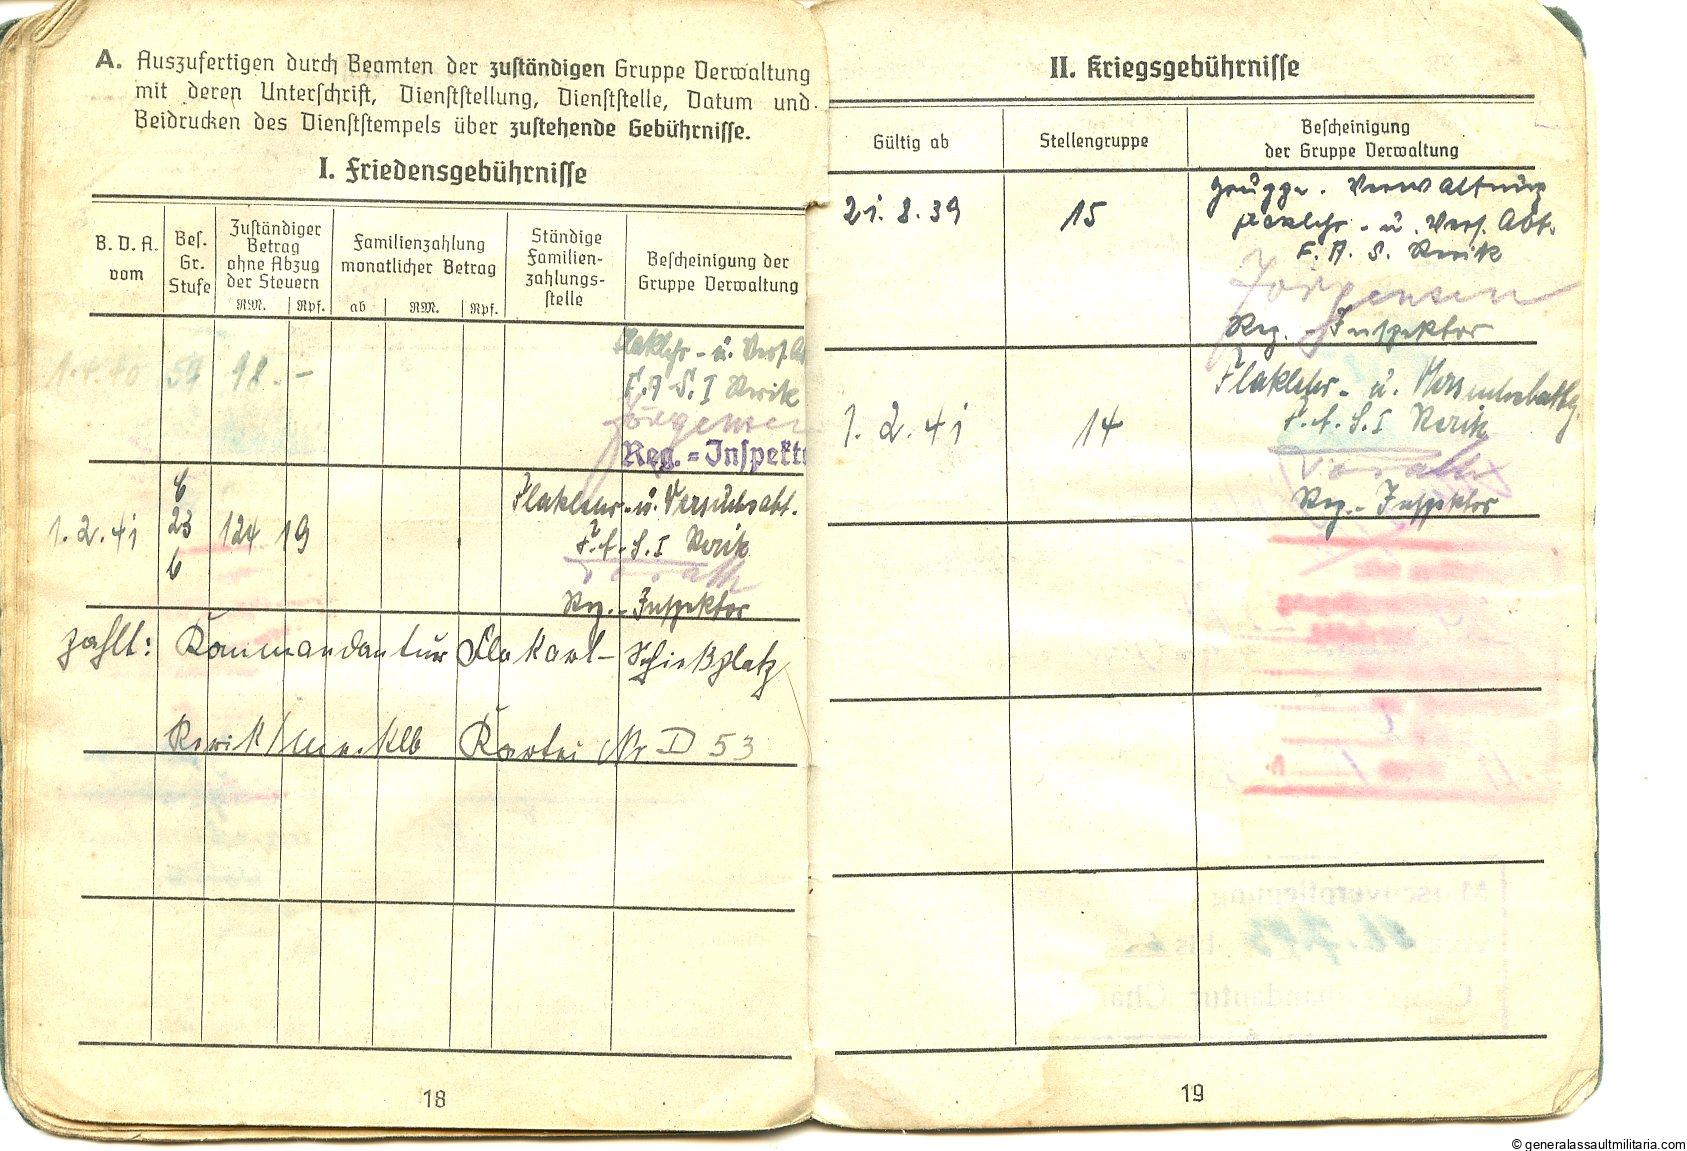 A. Auszufertigen durch Beamten der zuständigen Gruppe Verwaltung
mit deren Unterschrift, Dienststellung, Dienststelle, Datum und
Beidrucken des Dienststempels über zustehende Gebührnisse.
I. Friedensgebührnisse
B. D. A. vom
Bes. Gr. Stufe
Zuständiger
Betrag
ohne Abzug
der Steuern
RM. Rpf.
Familienzahlung
monatlicher Betrag
ab RM. Rpf.
Ständige
Familien-
zahlungs-
stelle
Bescheinigung der
Gruppe Verwaltung
1.4.40 98.-
Flaklehr- u. Vers.
F.A.S. I Rerik
Jörgensen
Reg.=Inspekto
1.2.41 23 124 19
Flaklehr- u. Versuchsabt.
F.A.S. I Rerik
Reg.-Inspektor
zahlt: Kommandantur Flakart-Schießplatz
Rerik/Mecklb Kartei Nr. D 53
18
II. Kriegsgebührnisse
Gültig ab
Stellengruppe
Bescheinigung
der Gruppe Verwaltung
21.8.39 15
Gruppe. Verwaltung
Flaklehr- u. Vers. Abt.
F.A.S. Rerik
Jörgensen
Reg.-Inspektor
1.2.41 14
Flaklehr- u. Versuchsabtlg.
F.A.S. I Rerik
Reg.-Inspektor
19
© generalassaultmilitaria.com